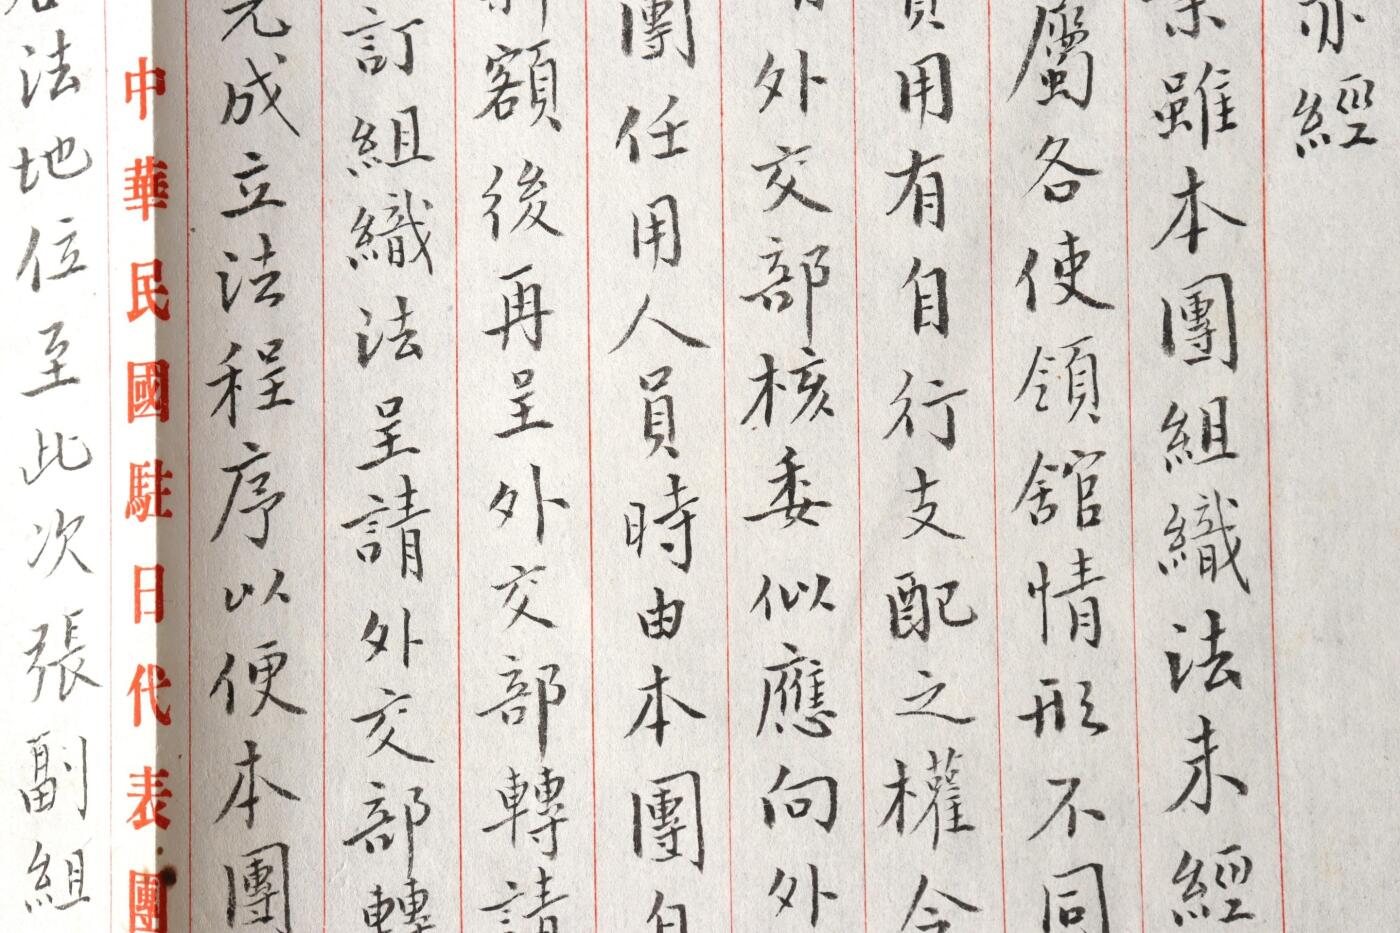 亦經
雖本團組織法未經
屬各使領館情形不同
用有自行支配之權令
外交部核委似應向外
團任用人員時由本團自
額後再呈外交部轉請
訂組織法呈請外交部轉
完成立法程序以便本團
中華民國駐日代表團
法地位至此次張副組